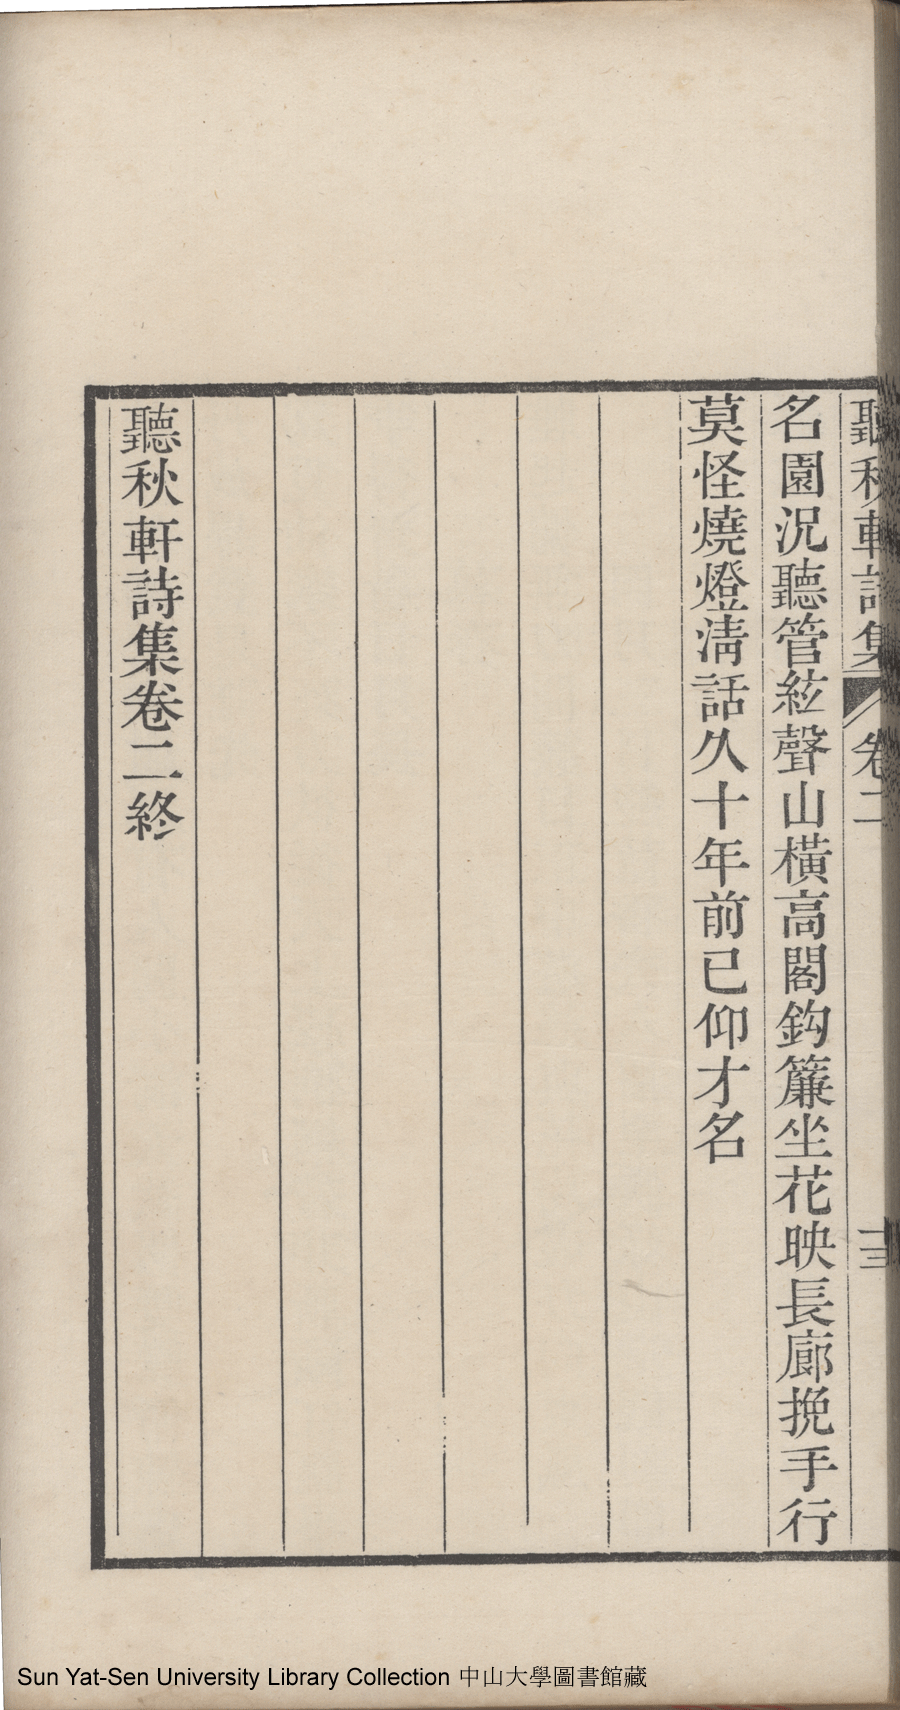 聽秋軒詩集 卷二 十三
名園況聽管絃聲山橫高閣鈎簾坐花映長廊挽手行
莫怪燒燈淸話久十年前已仰才名
聽秋軒詩集卷二終
Sun Yat-Sen University Library Collection 中山大學圖書館藏